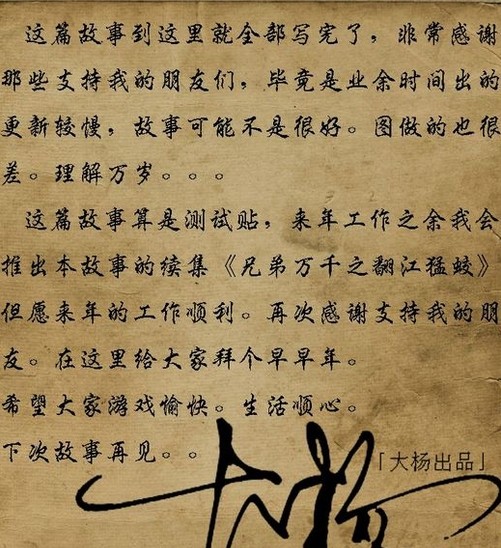 这篇故事到这里就全部写完了，非常感谢
那些支持我的朋友们，毕竟是业余时间出的
更新较慢，故事可能不是很好。图做的也很
差。理解万岁。。。
这篇故事算是测试贴，来年工作之余我会
推出本故事的续集《兄弟万千之翻江猛蛟》
但愿来年的工作顺利。再次感谢支持我的朋
友。在这里给大家拜个早早年。
希望大家游戏愉快。生活顺心。
下次故事再见。。
「大杨出品」
大杨